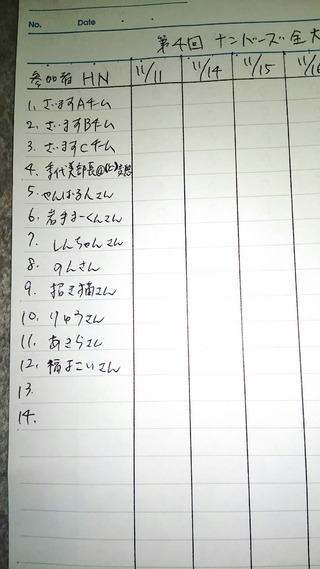 No. Date
第4回 ナンバーズ 全
参加者 HN 11/11 11/14 11/15 11/16
1. ざますAチーム
2. ざますBチーム
3. ざますCチーム
4.
5. やんばる人さん
6. 若手まーくんさん
7. しんちゃんさん
8. のんさん
9. 招き猫さん
10. りゅうさん
11. あきらさん
12. 福よこいさん
13.
14.